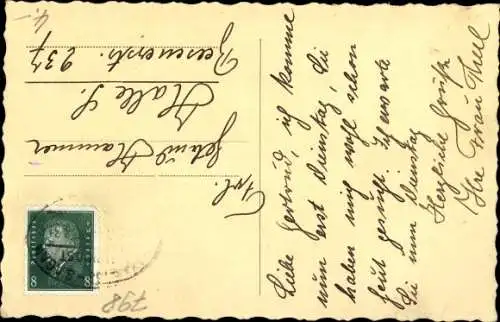 Frl.
Gertrud Hammer
Halle S.
Beesenerstr. 237
Liebe Gertrud, ich komme
nun erst Dienstag, Sie
haben mich wohl schon
heut gesucht. Ich erwarte
Sie nun Dienstag
Herzliche Grüße
Ihre Frau Theil
8 8
798
4.-